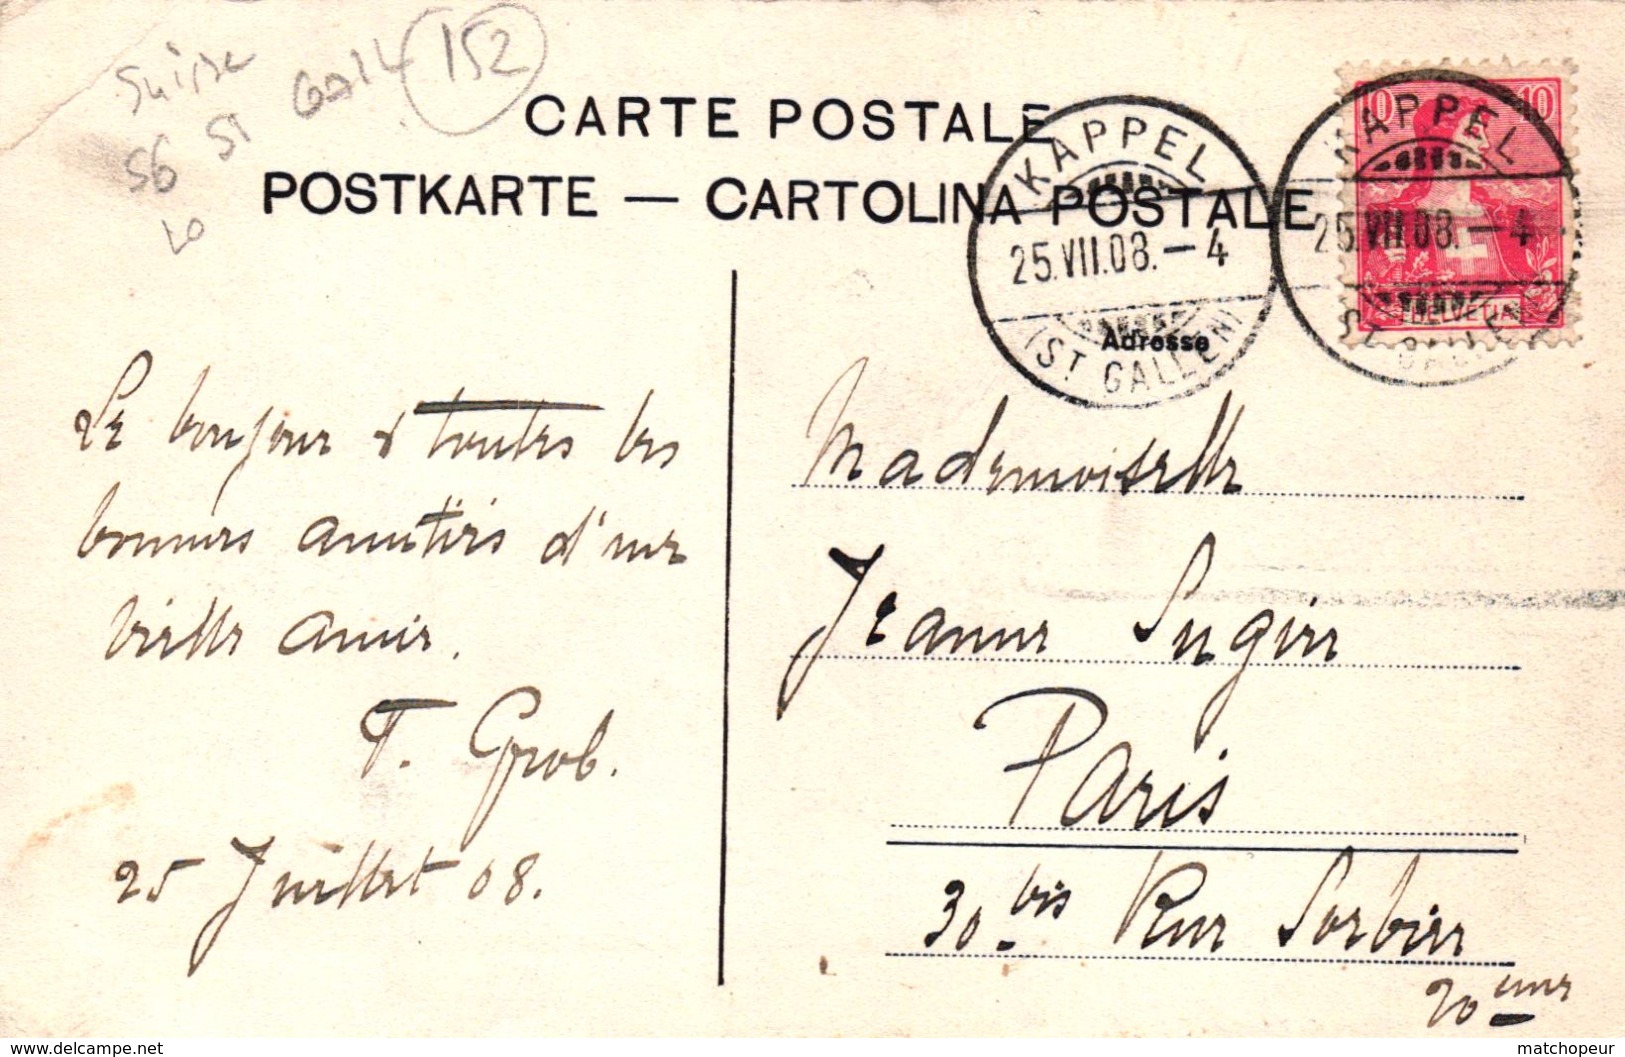 Suisse
56 ST Gall 152
LO
CARTE POSTALE
POSTKARTE — CARTOLINA POSTALE
KAPPEL
25.VII.08.-4
(ST GALLEN)
KAPPEL
25.VII.08.-4
ST GALLEN
10 10
HELVETIA
Adresse
Le bonjour & toutes les
bonnes amitiés d'une
vieille amie.
T. Grob.
25 Juillet 08.
Mademoiselle
Jeanne Sugier
Paris
30 bis Rue Sorbier
20 eme
delcampe.net
matchopeur